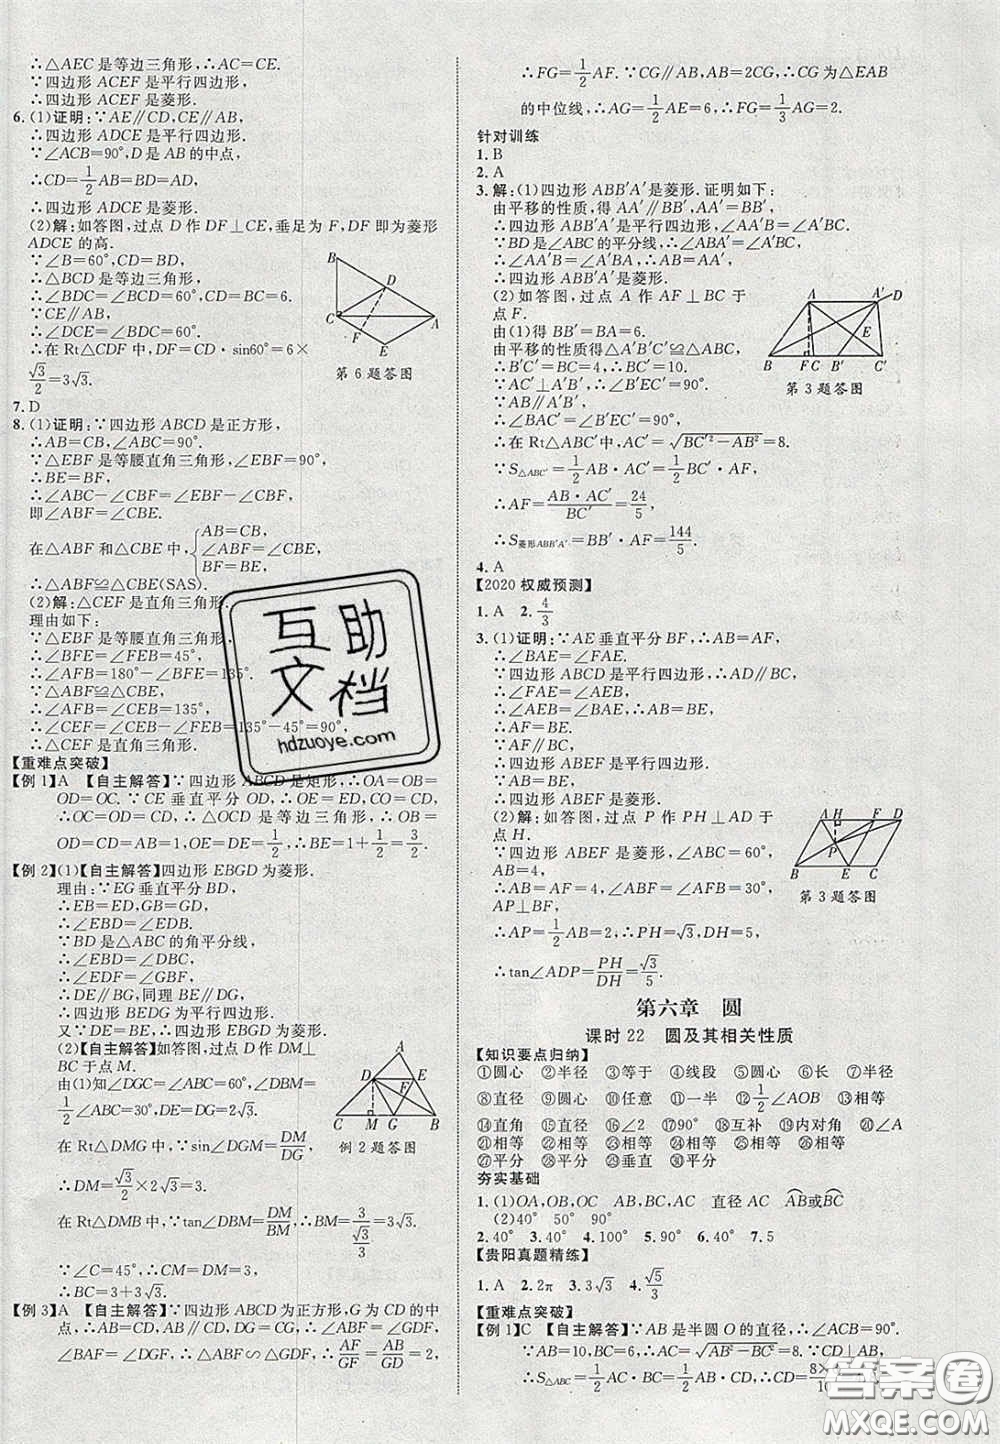 ∴△AEC 是等边三角形,∴AC=CE.
∴四边形 ACEF 是平行四边形,
∴四边形 ACEF 是菱形.
6.(1)证明:∵AE∥CD,CE∥AB,
∴四边形 ADCE 是平行四边形.
∵∠ACB=90°,D 是 AB 的中点,
∴CD=1/2AB=BD=AD,
∴四边形 ADCE 是菱形.
(2)解:如答图,过点 D 作 DF⊥CE,垂足为 F,DF 即为菱形
ADCE 的高.
∵∠B=60°,CD=BD,
∴△BCD 是等边三角形,
∴∠BDC=∠BCD=60°,CD=BC=6.
∵CE∥AB,
∴∠DCE=∠BDC=60°.
∴在 Rt△CDF 中,DF=CD·sin60°=6×
√3/2=3√3.
B
D
C
A
F
E
第 6 题答图
7.D
8.(1)证明:∵四边形 ABCD 是正方形,
∴AB=CB,∠ABC=90°.
∵△EBF 是等腰直角三角形,∠EBF=90°,
∴BE=BF,
∴∠ABC-∠CBF=∠EBF-∠CBF,
即∠ABF=∠CBE.
在△ABF 和△CBE 中,{AB=CB, ∠ABF=∠CBE, BF=BE,
∴△ABF≌△CBE(SAS).
(2)解:△CEF 是直角三角形.
理由如下:
∵△EBF 是等腰直角三角形,
∴∠BFE=∠FEB=45°,
∴∠AFB=180°-∠BFE=135°.
∵△ABF≌△CBE,
∴∠CEB=∠AFB=135°,
∴∠CEF=∠CEB-∠FEB=135°-45°=90°,
∴△CEF 是直角三角形.
【重难点突破】
【例 1】A 【自主解答】∵四边形 ABCD 是矩形,∴OA=OB=
OD=OC.∵CE 垂直平分 OD,∴OE=ED,CO=CD,
∴OC=OD=CD,∴△OCD 是等边三角形,∴OB=
OD=CD=AB=1,OE=DE=1/2,∴BE=1+1/2=3/2.
【例 2】(1)【自主解答】四边形 EBGD 为菱形.
理由:∵EG 垂直平分 BD,
∴EB=ED,GB=GD,
∴∠EBD=∠EDB.
∵BD 是△ABC 的角平分线,
∴∠EBD=∠DBC,
∴∠EDF=∠GBF,
∴DE∥BG,同理 BE∥DG,
∴四边形 BEDG 为平行四边形.
又∵DE=BE,∴四边形 EBGD 为菱形.
(2)【自主解答】如答图,过点 D 作 DM⊥
BC 于点 M.
由(1)知∠DGC=∠ABC=30°,∠DBM=
1/2∠ABC=15°,DE=DG=2√3.
在 Rt△DMG 中,∵sin∠DGM=DM/DG,
∴DM=√3/2×2√3=3.
在 Rt△DMB 中,∵tan∠DBM=DM/BM,∴BM=3/(√3/3)=3√3.
∵∠C=45°,∴CM=DM=3,
∴BC=3+3√3.
A
D
E
F
C
M
G
B
例 2 题答图
【例 3】A 【自主解答】∵四边形 ABCD 为正方形,G 为 CD 的中
点,∴AB=CD,AB∥CD,∴∠ABF=∠GDF,
∠BAF=∠DGF,∴△ABF∽△GDF,∴AF/GF=AB/GD=2,
∴FG=1/2AF.∵CG∥AB,AB=2CG,∴CG 为△EAB
的中位线,∴AG=1/2AE=6,∴FG=1/3AG=2.
针对训练
1.B
2.A
3.解:(1)四边形 ABB′A′是菱形.证明如下:
由平移的性质,得 AA′∥BB′,AA′=BB′,
∴四边形 ABB′A′是平行四边形,∠AA′B=∠A′BC.
∵BD 是∠ABC 的平分线,∴∠ABA′=∠A′BC,
∴∠AA′B=∠A′BA,∴AB=AA′,
∴四边形 ABB′A′是菱形.
(2)如答图,过点 A 作 AF⊥BC 于
点 F.
由(1)得 BB′=BA=6.
由平移的性质得△A′B′C′≌△ABC,
∴B′C′=BC=4,∴BC′=10.
∵AC′⊥A′B′,∴∠B′EC′=90°.
∵AB∥A′B′,
∴∠BAC′=∠B′EC′=90°.
∴在 Rt△ABC′中,AC′=√(BC′²-AB²)=8.
∵S△ABC′=1/2AB·AC′=1/2BC′·AF,
∴AF=AB·AC′/BC′=24/5,
∴S菱形ABB′A′=BB′·AF=144/5.
A
A′
D
E
B
F
C
B′
C′
第 3 题答图
4.A
【2020 权威预测】
1.A 2.4/3
3.(1)证明:∵AE 垂直平分 BF,∴AB=AF,
∴∠BAE=∠FAE.
∵四边形 ABCD 是平行四边形,∴AD∥BC,
∴∠FAE=∠AEB,∴∠AEB=∠BAE,
∴AB=BE,
∴AF=BE.
∵AF∥BE,
∴四边形 ABEF 是平行四边形.
∵AB=BE,
∴四边形 ABEF 是菱形.
(2)解:如答图,过点 P 作 PH⊥AD 于
点 H.
∵四边形 ABEF 是菱形,∠ABC=60°,
AB=4,
∴AB=AF=4,∠ABF=∠AFB=30°,
AP⊥BF,
∴AP=1/2AB=2,∴PH=√3,DH=5,
∴tan∠ADP=PH/DH=√3/5.
A
H
F
D
P
B
E
C
第 3 题答图
第六章 圆
课时 22 圆及其相关性质
【知识要点归纳】
①圆心 ②半径 ③等于 ④线段 ⑤圆心 ⑥长 ⑦半径
⑧直径 ⑨圆心 ⑩任意 ⑪一半 ⑫1/2∠AOB ⑬相等
⑭直角 ⑮直径 ⑯∠2 ⑰90° ⑱互补 ⑲内对角 ⑳∠A
㉑相等 ㉒相等 ㉓相等 ㉔相等 ㉕相等 ㉖相等
㉗平分 ㉘平分 ㉙垂直 ㉚平分
夯实基础
1.(1)OA,OB,OC AB,BC,AC 直径 AC AB或BC
(2)40° 50° 90°
2.40° 3.40° 4.100° 5.90° 6.40° 7.5
【贵阳真题精练】
1.A 2.2π 3.3√3 4.√5/3
【重难点突破】
【例 1】C 【自主解答】∵AB 是半圆 O 的直径,∴∠ACB=90°.
∵AB=10,BC=6,∴AC=√(AB²-BC²)=8.∵CD⊥AB,
∴S△ABC=1/2AC·BC=1/2AB·CD,∴CD=
互助
文档
hdzuoye.com
答案圈
MXQE.COM